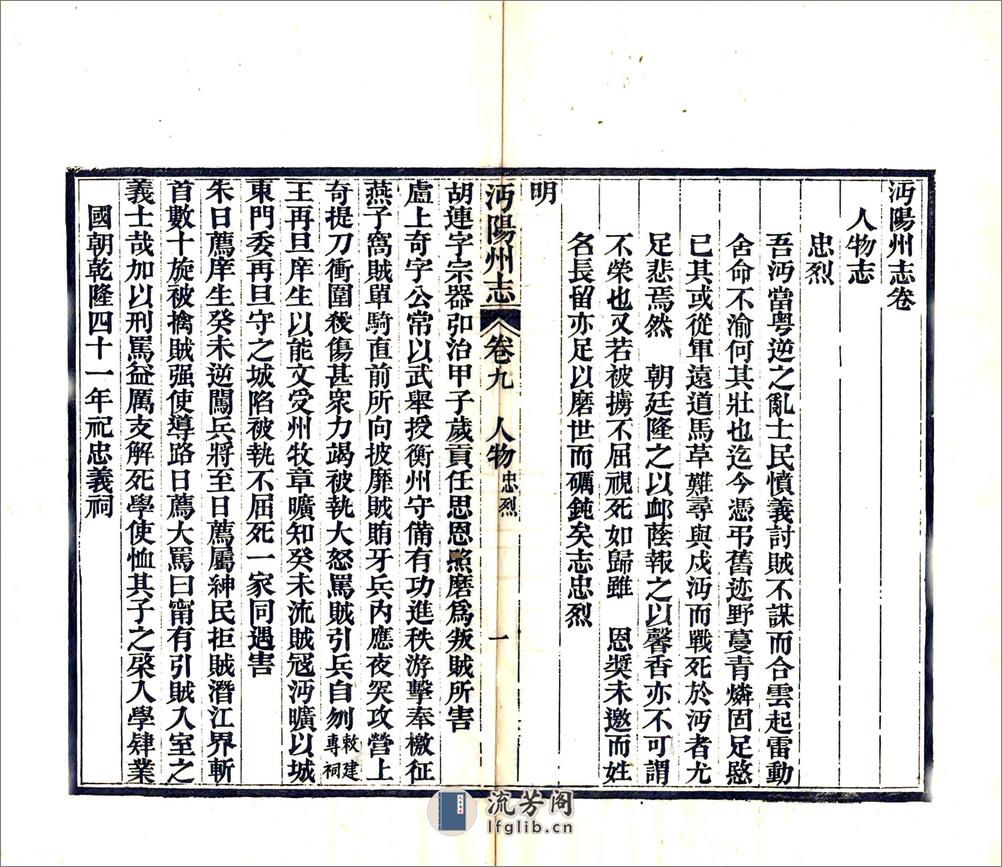 沔陽州志卷
人物志
忠烈
吾沔當粤逆之亂士民憤義討賊不謀而合雲起雷動
舍命不渝何其壯也迄今憑弔舊迹野蔓青燐固足愍
已其或從軍遠道馬草難尋與戍沔而戰死於沔者尤
足悲焉然　朝廷隆之以卹蔭報之以馨香亦不可謂
不榮也又若被擄不屈視死如歸雖　恩奬未邀而姓
名長留亦足以磨世而礪鈍矣志忠烈
明
沔陽州志　卷九　人物忠烈　一
胡連字宗器弘治甲子歲貢任思恩照磨爲叛賊所害
盧上奇字公常以武舉授衡州守備有功進秩游擊奉檄征
燕子窩賊單騎直前所向披靡賊賄牙兵內應夜突攻營上
奇提刀衝圍殺傷甚衆力竭被執大怒罵賊引兵自刎敕建專祠
王再旦庠生以能文受州牧章曠知癸未流賊寇沔曠以城
東門委再旦守之城陷被執不屈死一家同遇害
朱日薦庠生癸未逆闖兵將至日薦屬紳民拒賊潛江界斬
首數十旋被擒賊强使導路日薦大罵曰甯有引賊入室之
義士哉加以刑罵益厲支解死學使恤其子之棨入學肄業
國朝乾隆四十一年祀忠義祠
流芳阁
lfglib.cn